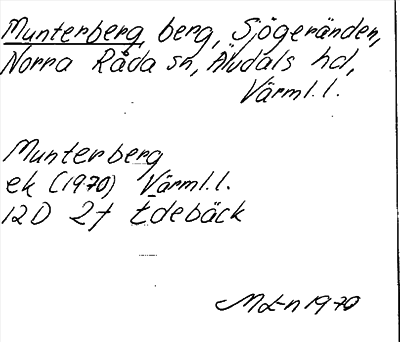 Munterberg, berg, Sjögeränden,
Norra Råda sn, Älvdals hd,
Värml. l.
Munterberg
ek (1970) Värml. l.
12D 2f Edebäck
1970